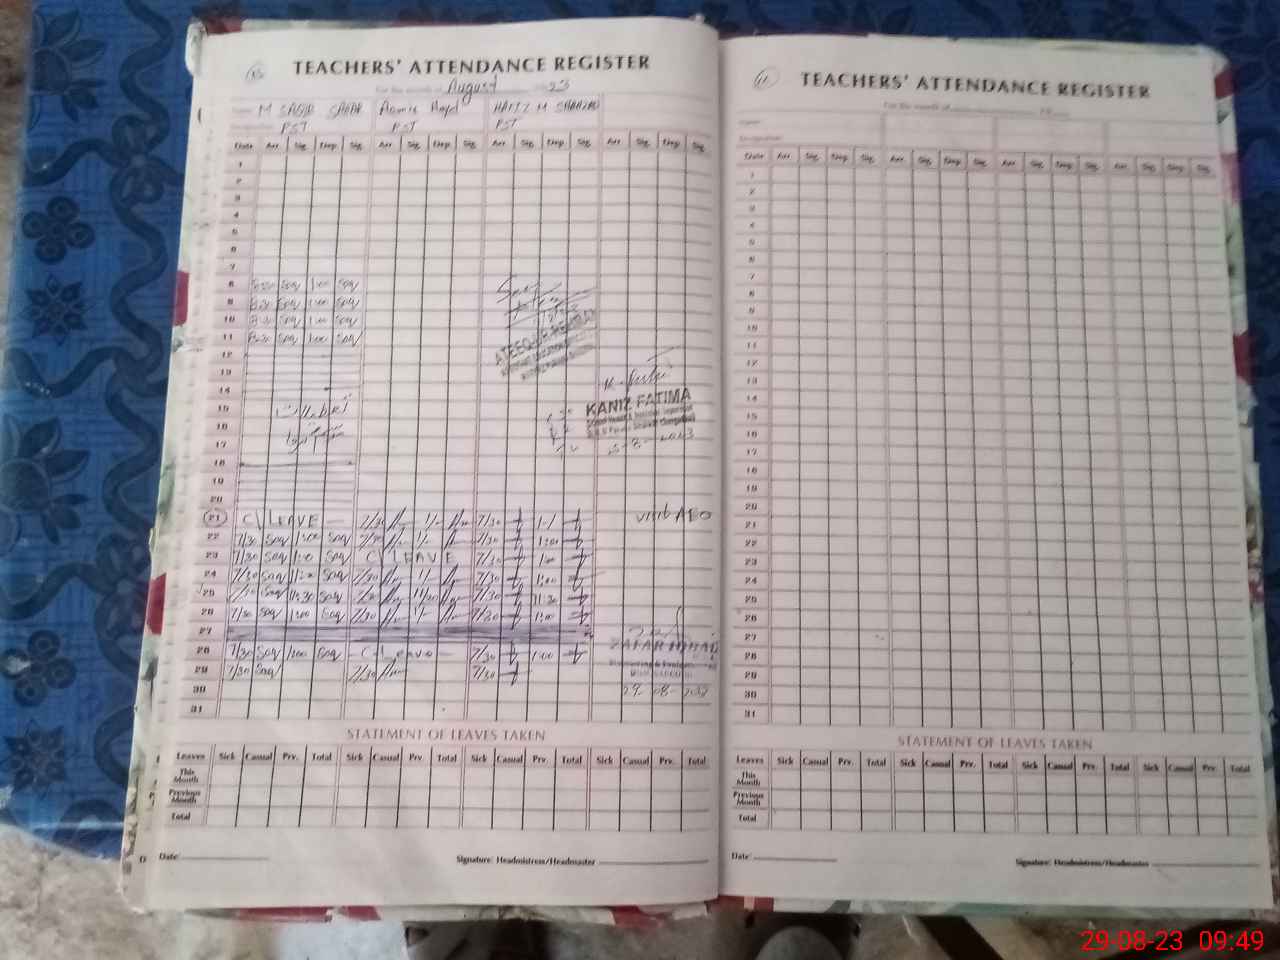 TEACHERS' ATTENDANCE REGISTER
For the month of August 23
Name M SAQIB
Designation PST PST PST
Date Arr. Sig. Dep. Sig. Arr. Sig. Dep. Sig. Arr. Sig. Dep. Sig. Arr. Sig. Dep. Sig.
1
2
3
4
5
6
7
8 8:30 Saq 1:00 Saq
9 8:30 Saq 1:00 Saq
10 8:30 Saq 1:00 Saq
11 8:30 Saq 1:00 Saq
ATEEQ-UR-REHMAN
12
13
14
KANIZ FATIMA
15
16
17
18
19
20
21 C\LEAVE 7/30 1/- 7/30 1-/ visit AEO
22 7/30 Saq 1:00 Saq 7/30 1/- 7/30 1:00
23 7/30 Saq 1:00 Saq C\LEAVE 7/30 1:00
24 7/30 Saq 1:00 Saq 7/30 1/- 7/30 1:00
25 7/30 Saq 11:30 Saq 7/30 11/30 7/30 11:30
26 7/30 Saq 1:00 Saq 7/30 1/- 7/30 1:00
27
ZAFAR IQBAL
28 7/30 Saq 1:00 Saq C-Leave 7/30 1:00
29 7/30 Saq 7/30 7/30
30
31
STATEMENT OF LEAVES TAKEN
Leaves Sick Casual Prv. Total Sick Casual Prv. Total Sick Casual Prv. Total Sick Casual Prv. Total
This Month
Previous Month
Total
Date: Signature: Headmistress/Headmaster
11
TEACHERS' ATTENDANCE REGISTER
For the month of
Name
Designation
Date Arr. Sig. Dep. Sig. Arr. Sig. Dep. Sig. Arr. Sig. Dep. Sig. Arr. Sig. Dep. Sig.
1
2
3
4
5
6
7
8
9
10
11
12
13
14
15
16
17
18
19
20
21
22
23
24
25
26
27
28
29
30
31
STATEMENT OF LEAVES TAKEN
Leaves Sick Casual Prv. Total Sick Casual Prv. Total Sick Casual Prv. Total Sick Casual Prv. Total
This Month
Previous Month
Total
Date: Signature: Headmistress/Headmaster
29-08-23 09:49